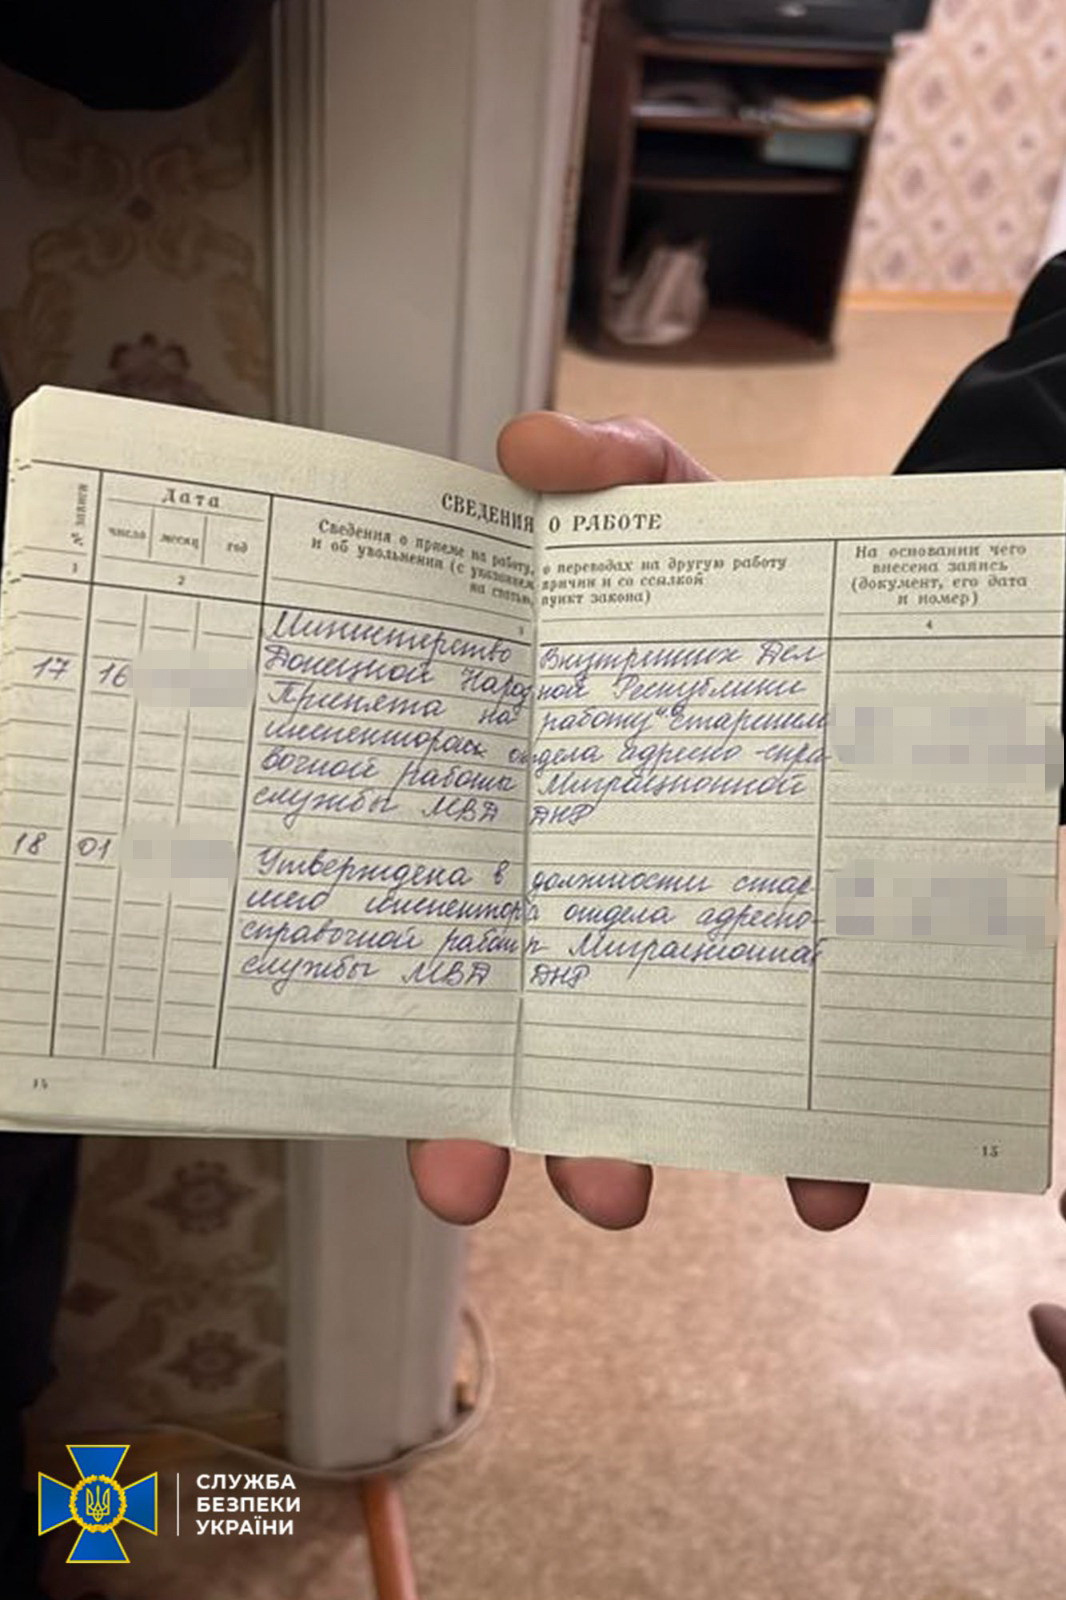 СВЕДЕНИЯ О РАБОТЕ
№ записи
Дата
число месяц год
Сведения о приеме на работу, о переводах на другую работу
и об увольнении (с указанием причин и со ссылкой
на статью, пункт закона)
На основании чего
внесена запись
(документ, его дата
и номер)
1 2 3 4
Министерство Внутренних Дел
17 16 Донецкой Народной Республики
Принята на работу старшим
инспектором отдела адресно-спра-
вочной работы Миграционной
службы МВД ДНР
18 01 Утверждена в должности стар-
шего инспектора отдела адресно-
справочной работы Миграционной
службы МВД ДНР
14
15
СЛУЖБА
БЕЗПЕКИ
УКРАЇНИ